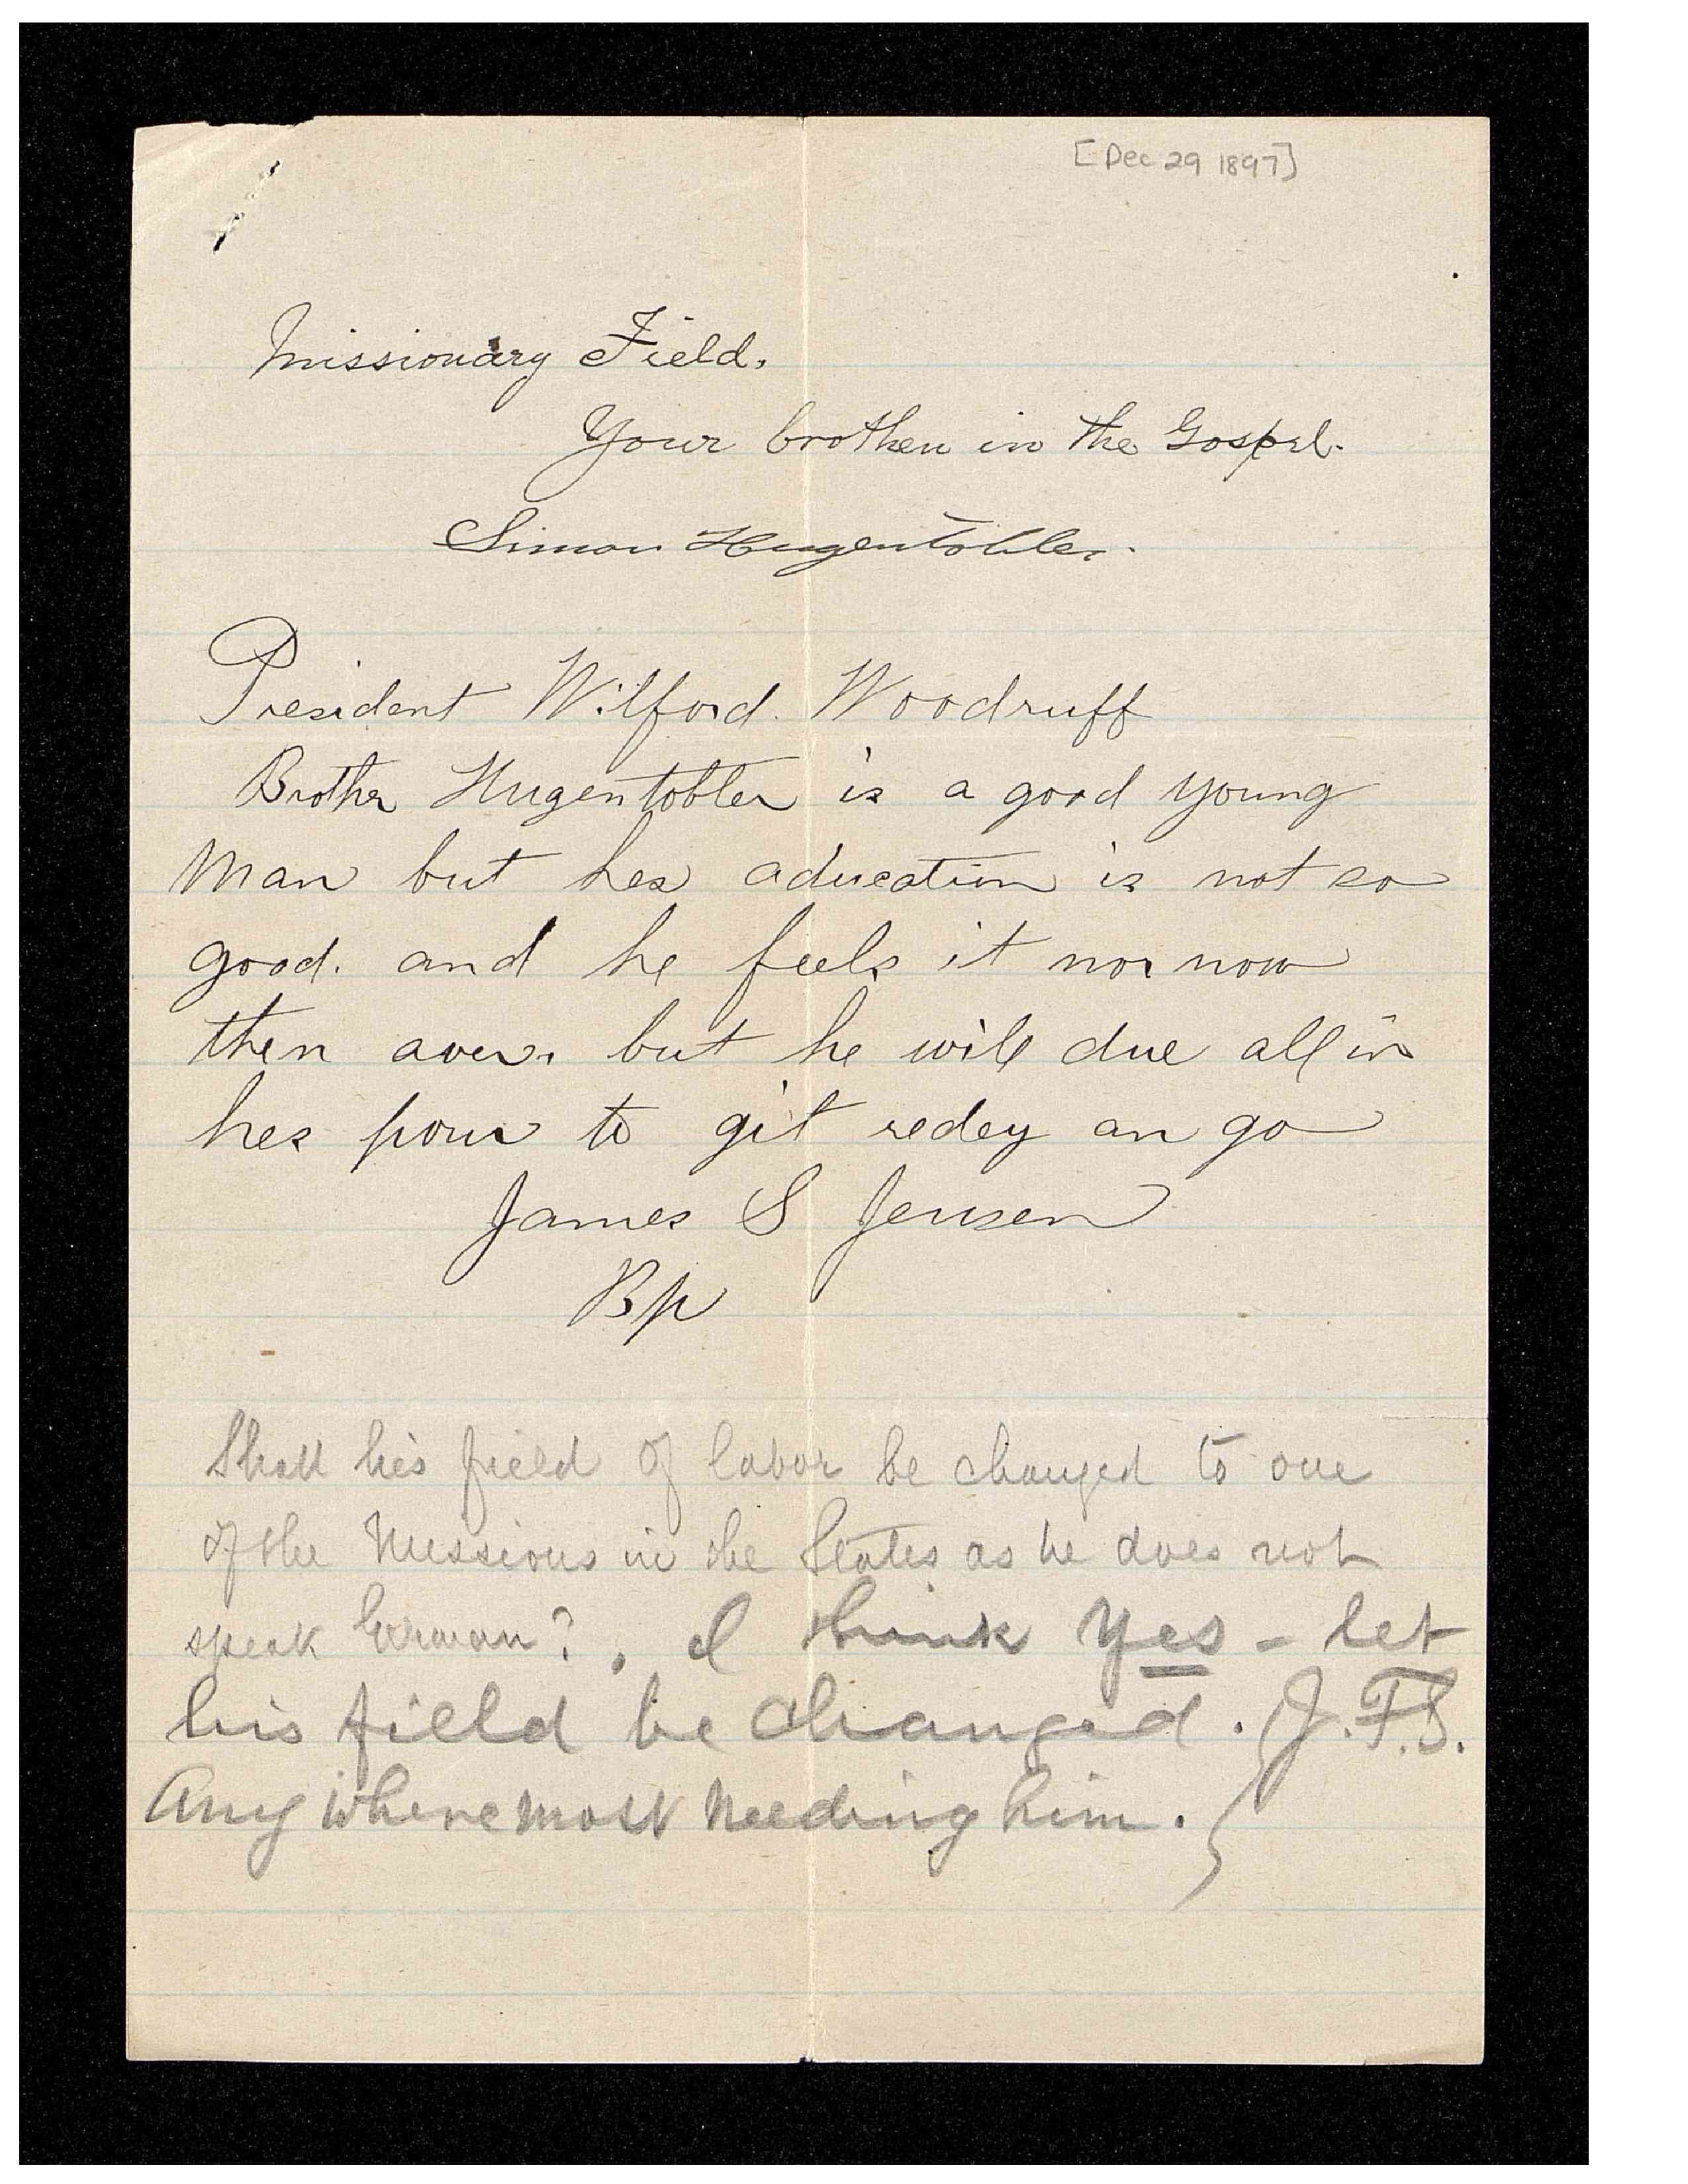 [Dec 29 1897]
Missionary Field.
Your brother in the Gospel.
Simon Hugentobler.
President Wilford. Woodruff
Brother Hugentobler is a good young
Man but hes aducation is not so
good. and he feels it mor now
then aver. but he will due all in
hes pour to git redey an go
James S Jensen
Bp
Shall his field of labor be changed to one
of the Missions in the States as he does not
speak German? . I think Yes - let
his field be changed. J.F.S.
Any where most needing him.